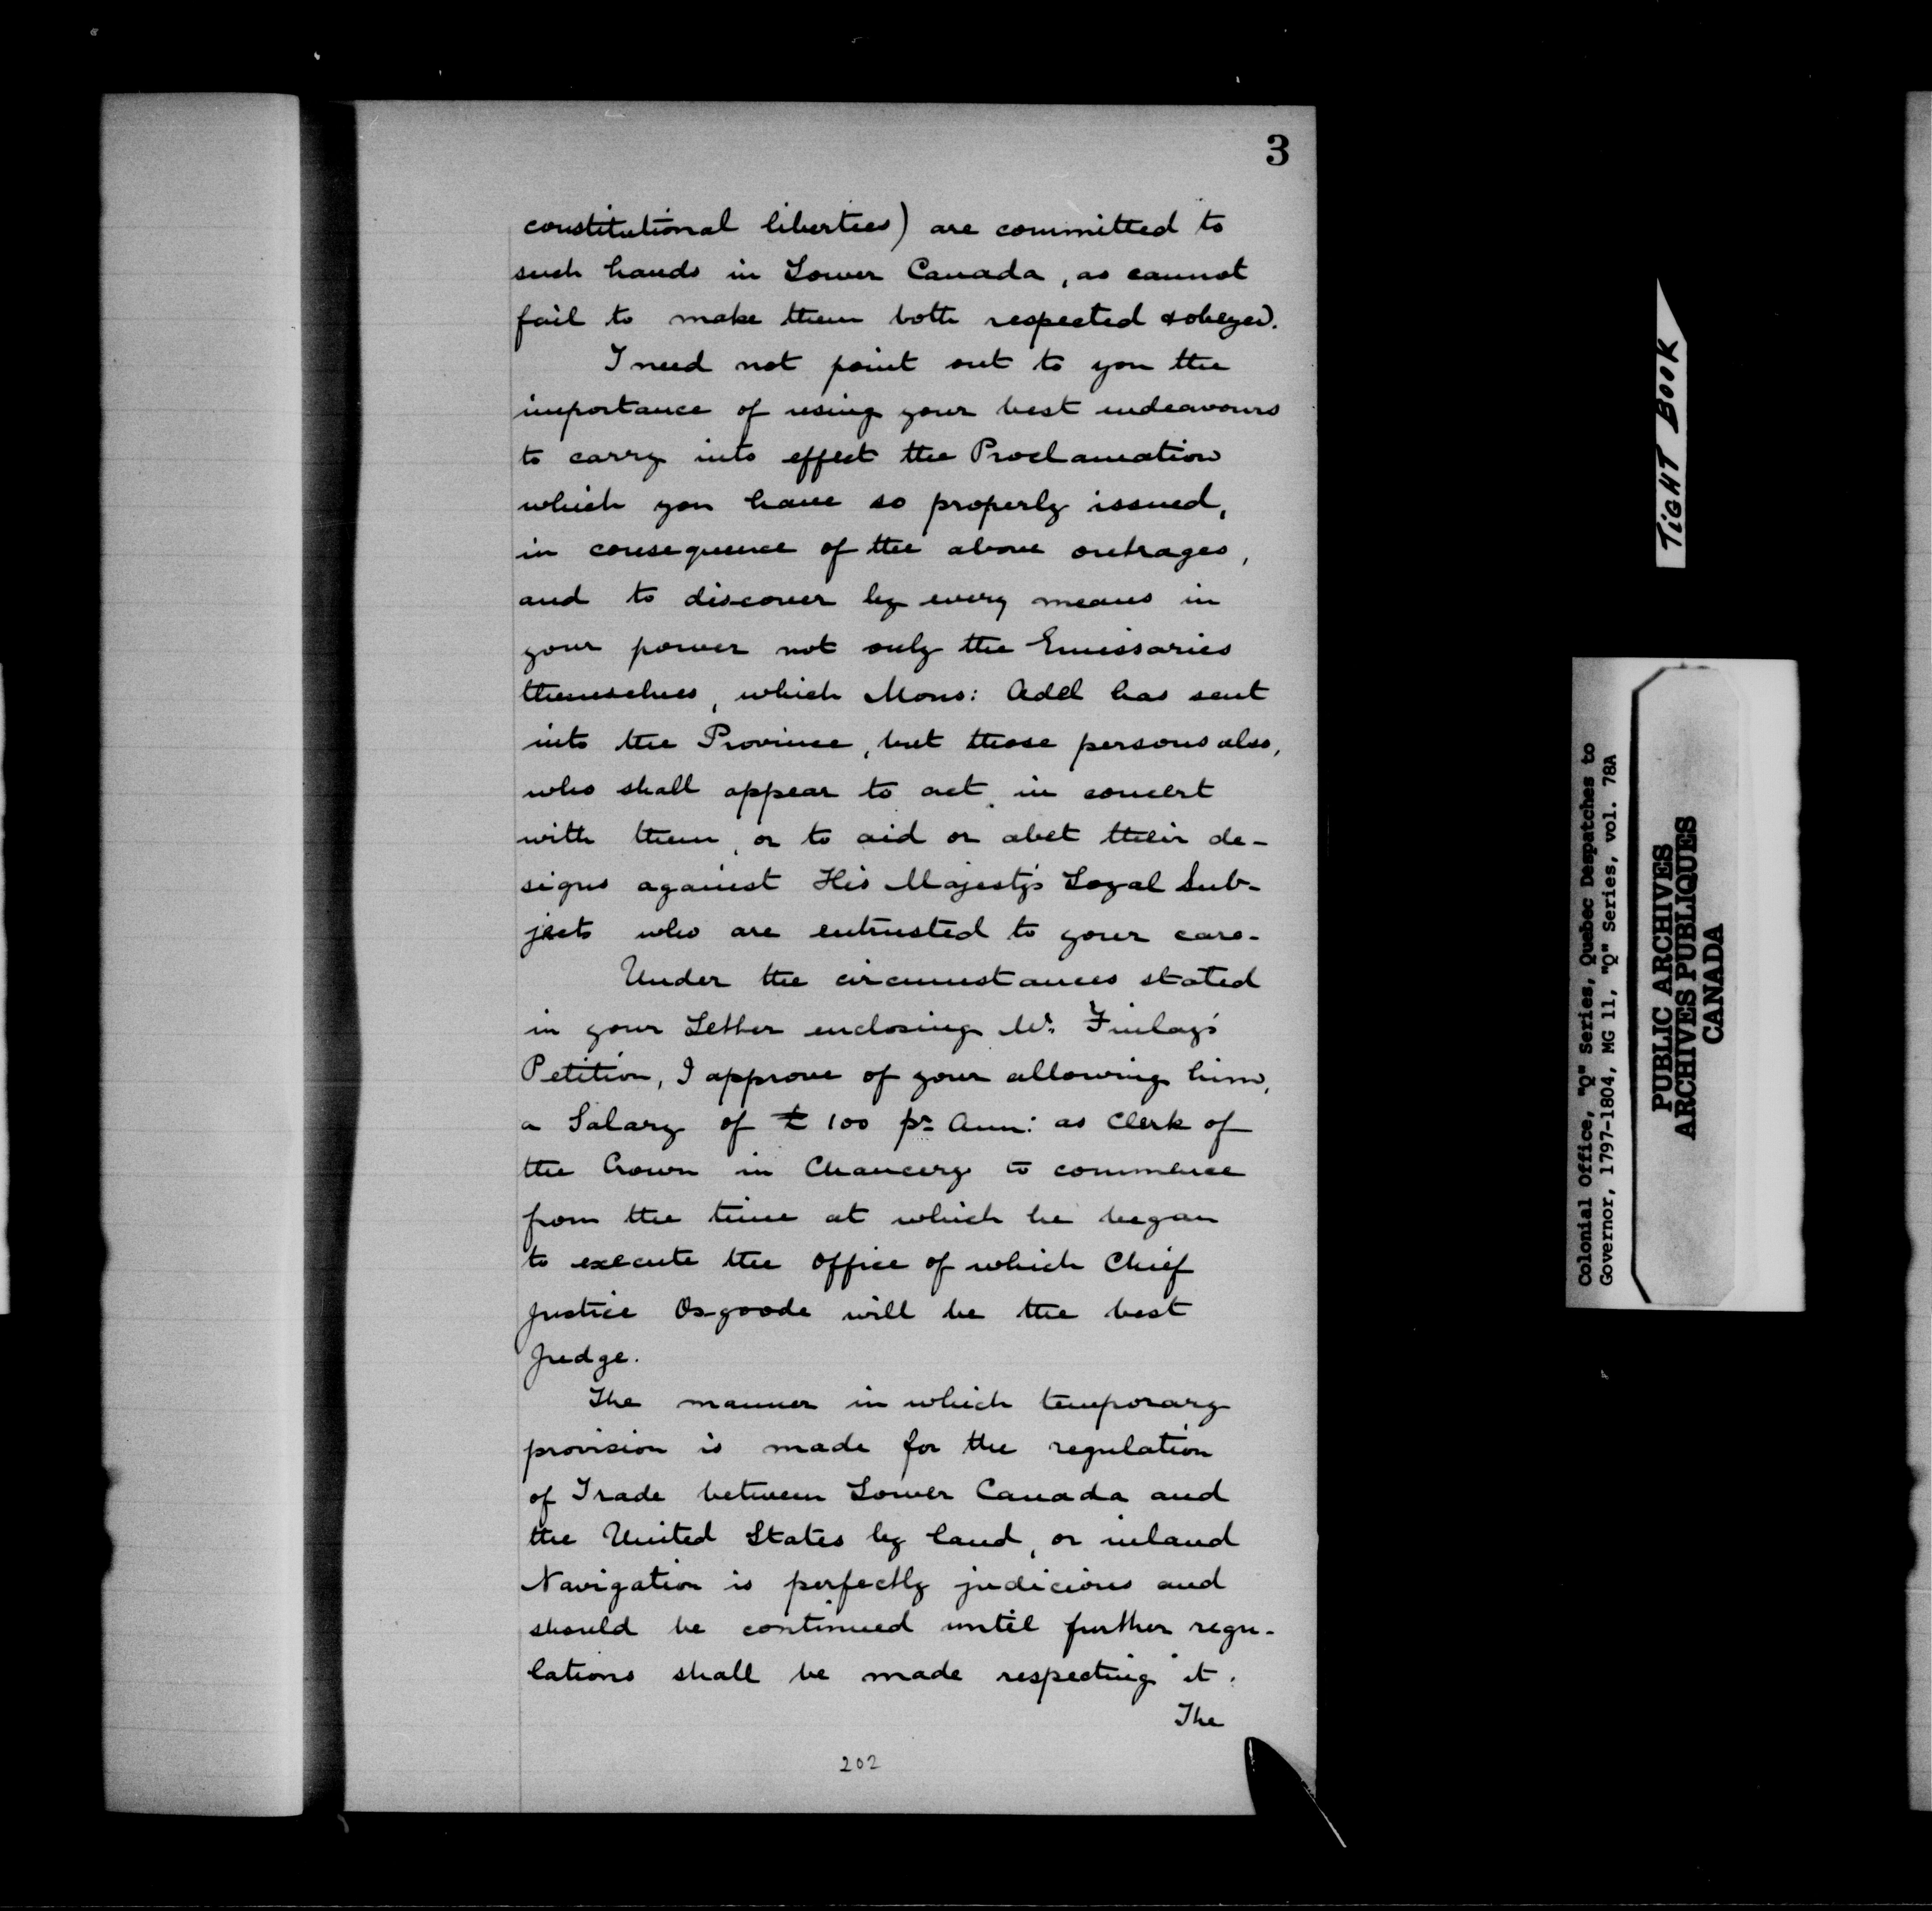 3
constitutional liberties) are committed to
such hands in Lower Canada, as cannot
fail to make them both respected & obeyed.
I need not point out to you the
importance of using your best endeavours
to carry into effect the Proclamation
which you have so properly issued,
in consequence of the above outrages,
and to discover by every means in
your power not only the Emissaries
themselves, which Mons: Adet has sent
into the Province, but those persons also,
who shall appear to act in concert
with them, or to aid or abet their de-
signs against His Majesty's Loyal Sub-
jects who are entrusted to your care.
Under the circumstances stated
in your Letter enclosing Mr. Finlay's
Petition, I approve of your allowing him,
a Salary of £100 pr Ann: as Clerk of
the Crown in Chancery to commence
from the time at which he began
to execute the Office of which Chief
Justice Osgoode will be the best
Judge.
The manner in which temporary
provision is made for the regulation
of Trade between Lower Canada and
the United States by land, or inland
Navigation is perfectly judicious and
should be continued until further regu-
lations shall be made respecting it.
The
202
TIGHT BOOK
Colonial Office, "Q" Series, Quebec Despatches to
Governor, 1797-1804, MG 11, "Q" Series, vol. 78A
PUBLIC ARCHIVES
ARCHIVES PUBLIQUES
CANADA